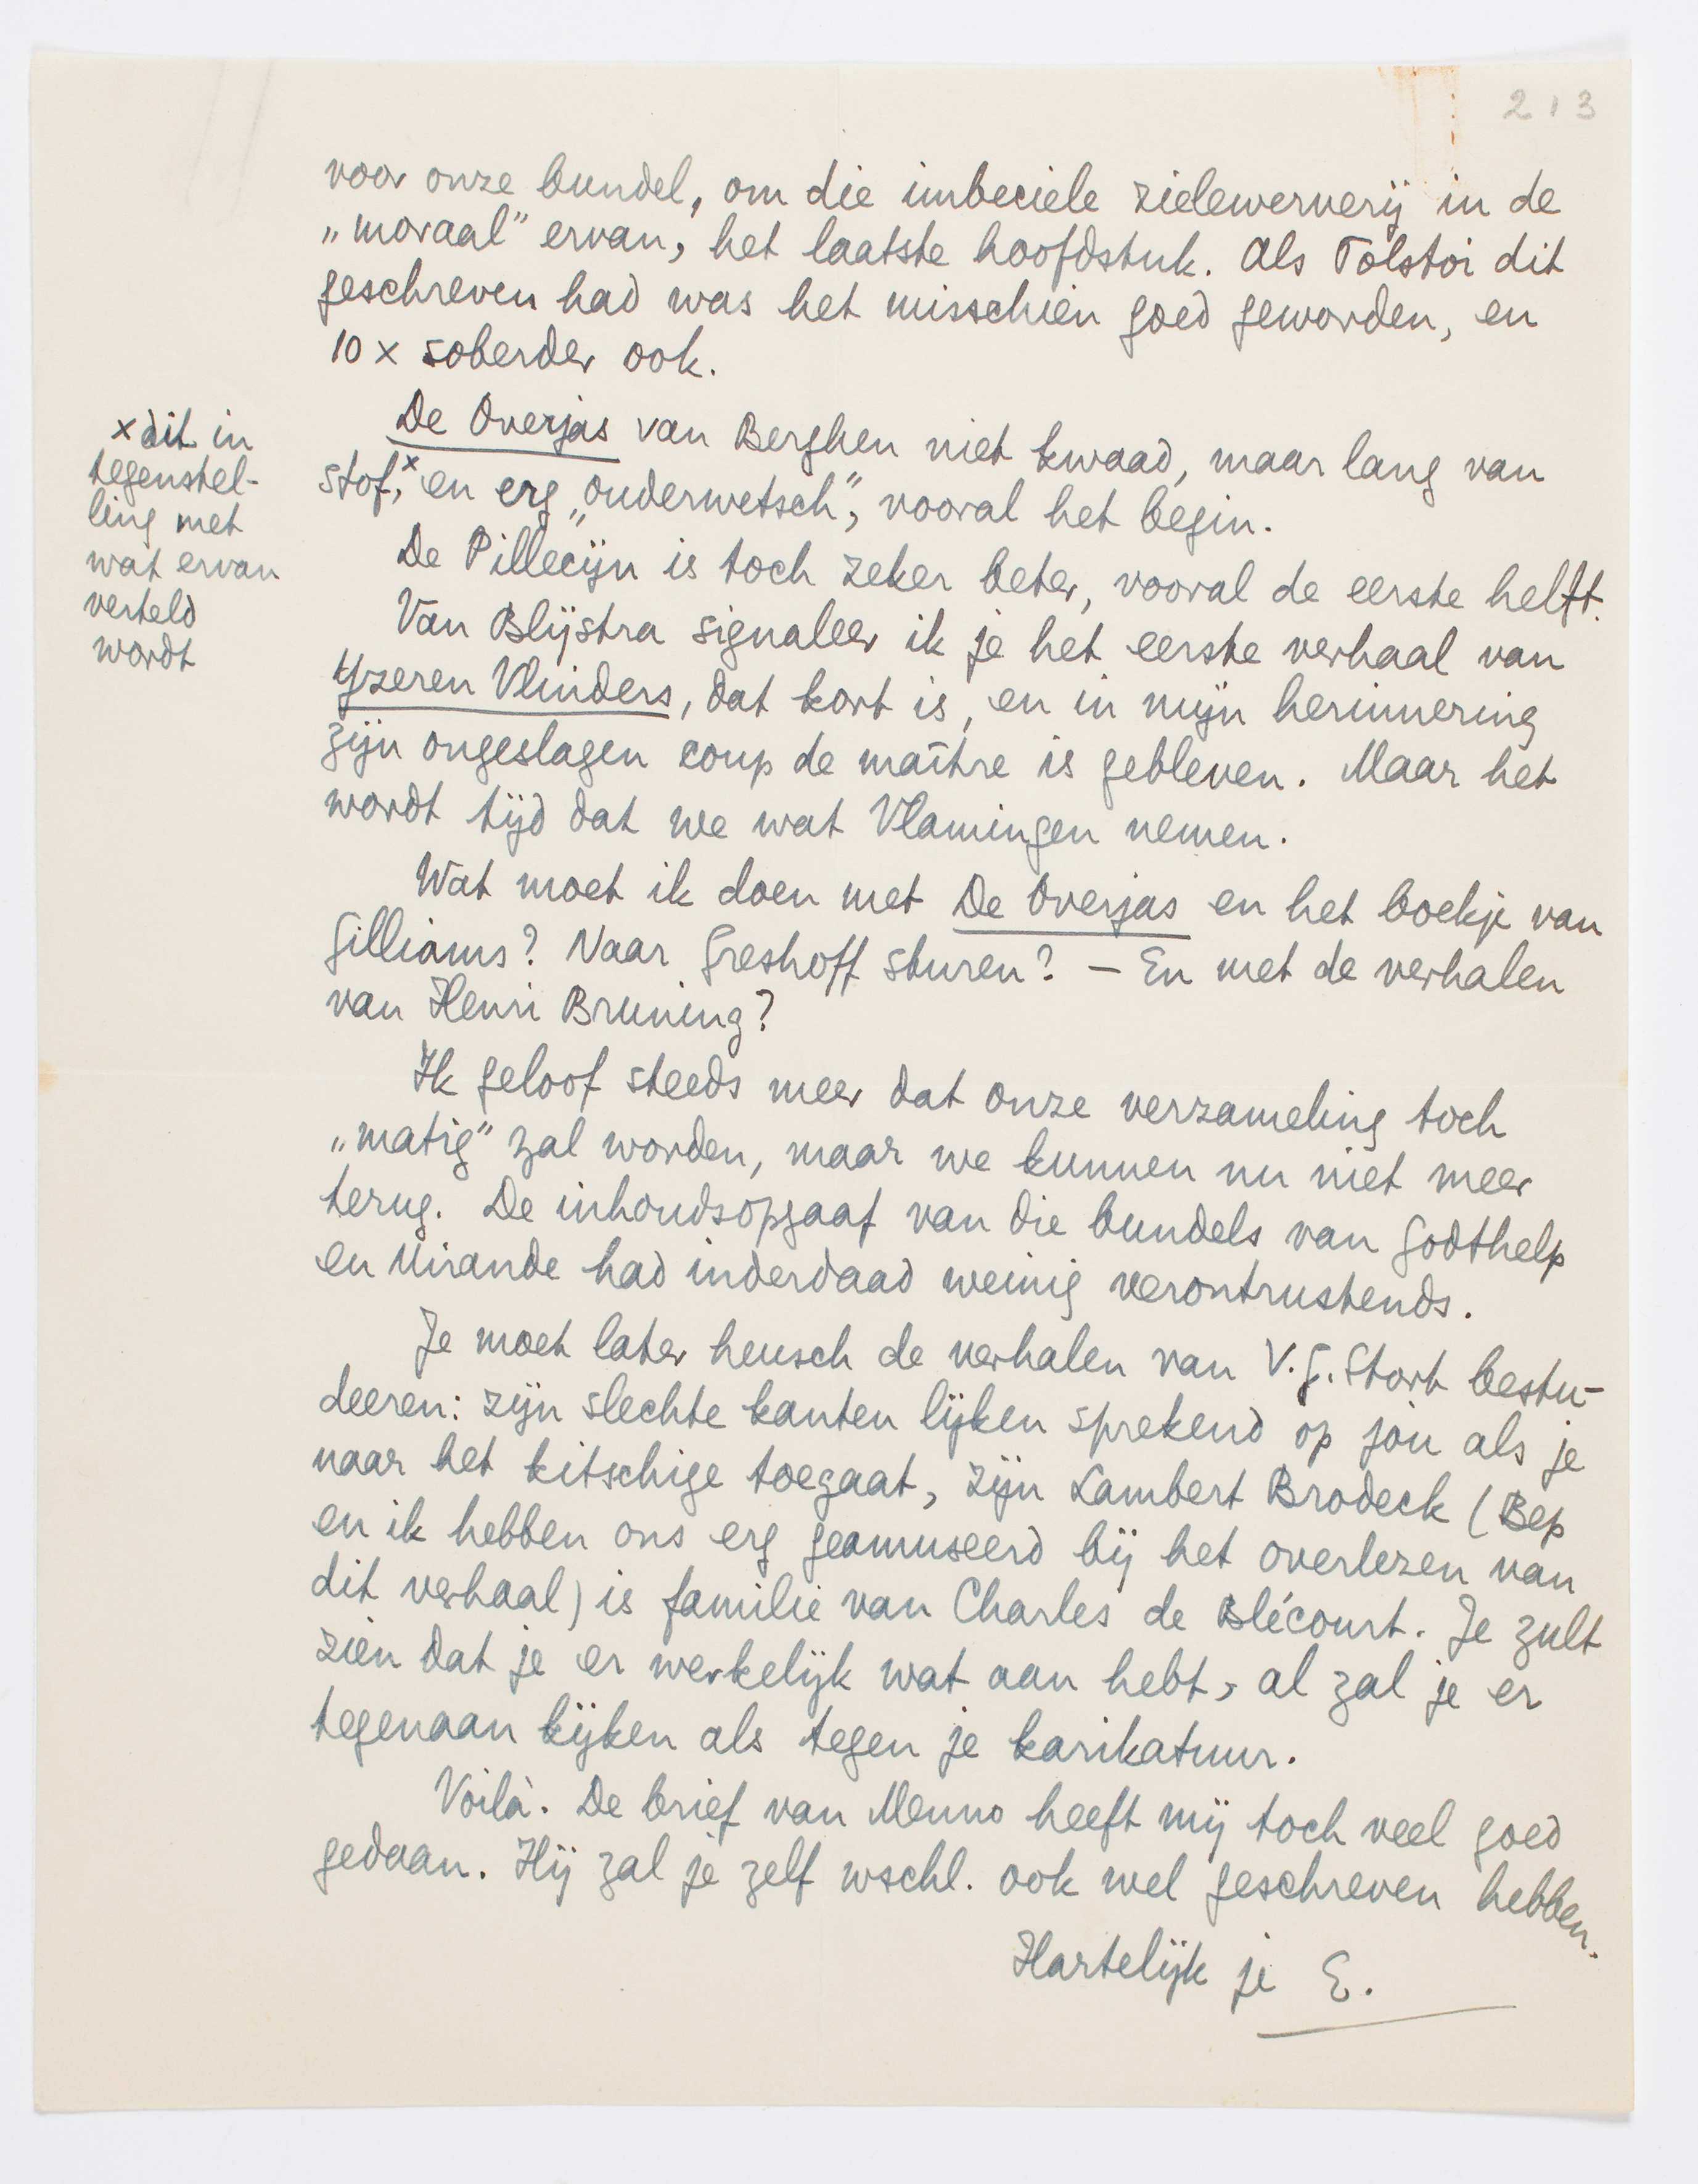 213
voor onze bundel, om die imbeciele zielewerverij in de
„moraal” ervan, het laatste hoofdstuk. Als Tolstoï dit
geschreven had was het misschien goed geworden, en
10 x soberder ook.
De Overjas van Berghen niet kwaad, maar lang van
stof,ˣ en erg „ouderwetsch”, vooral het begin.
x dit in
tegenstel-
ling met
wat ervan
verteld
wordt
De Pillecijn is toch zeker beter, vooral de eerste helft.
Van Blijstra signaleer ik je het eerste verhaal van
IJzeren Vlinders, dat kort is, en in mijn herinnering
zijn ongeslagen coup de maître is gebleven. Maar het
wordt tijd dat we wat Vlamingen nemen.
Wat moet ik doen met De Overjas en het boekje van
Gilliams? Naar Greshoff sturen? — En met de verhalen
van Henri Bruning?
Ik geloof steeds meer dat onze verzameling toch
„matig” zal worden, maar we kunnen nu niet meer
terug. De inhoudsopgaaf van die bundels van Godthelp
en Mirande had inderdaad weinig verontrustends.
Je moet later heusch de verhalen van V.G. Stork bestu-
deeren: zijn slechte kanten lijken sprekend op jou als je
naar het kitschige toegaat, zijn Lambert Brodeck (Bep
en ik hebben ons erg geamuseerd bij het overlezen van
dit verhaal) is familie van Charles de Blécourt. Je zult
zien dat je er werkelijk wat aan hebt, al zal je er
tegenaan kijken als tegen je karikatuur.
Voilà. De brief van Menno heeft mij toch veel goed
gedaan. Hij zal je zelf wschl. ook wel geschreven hebben.
Hartelijk je E.